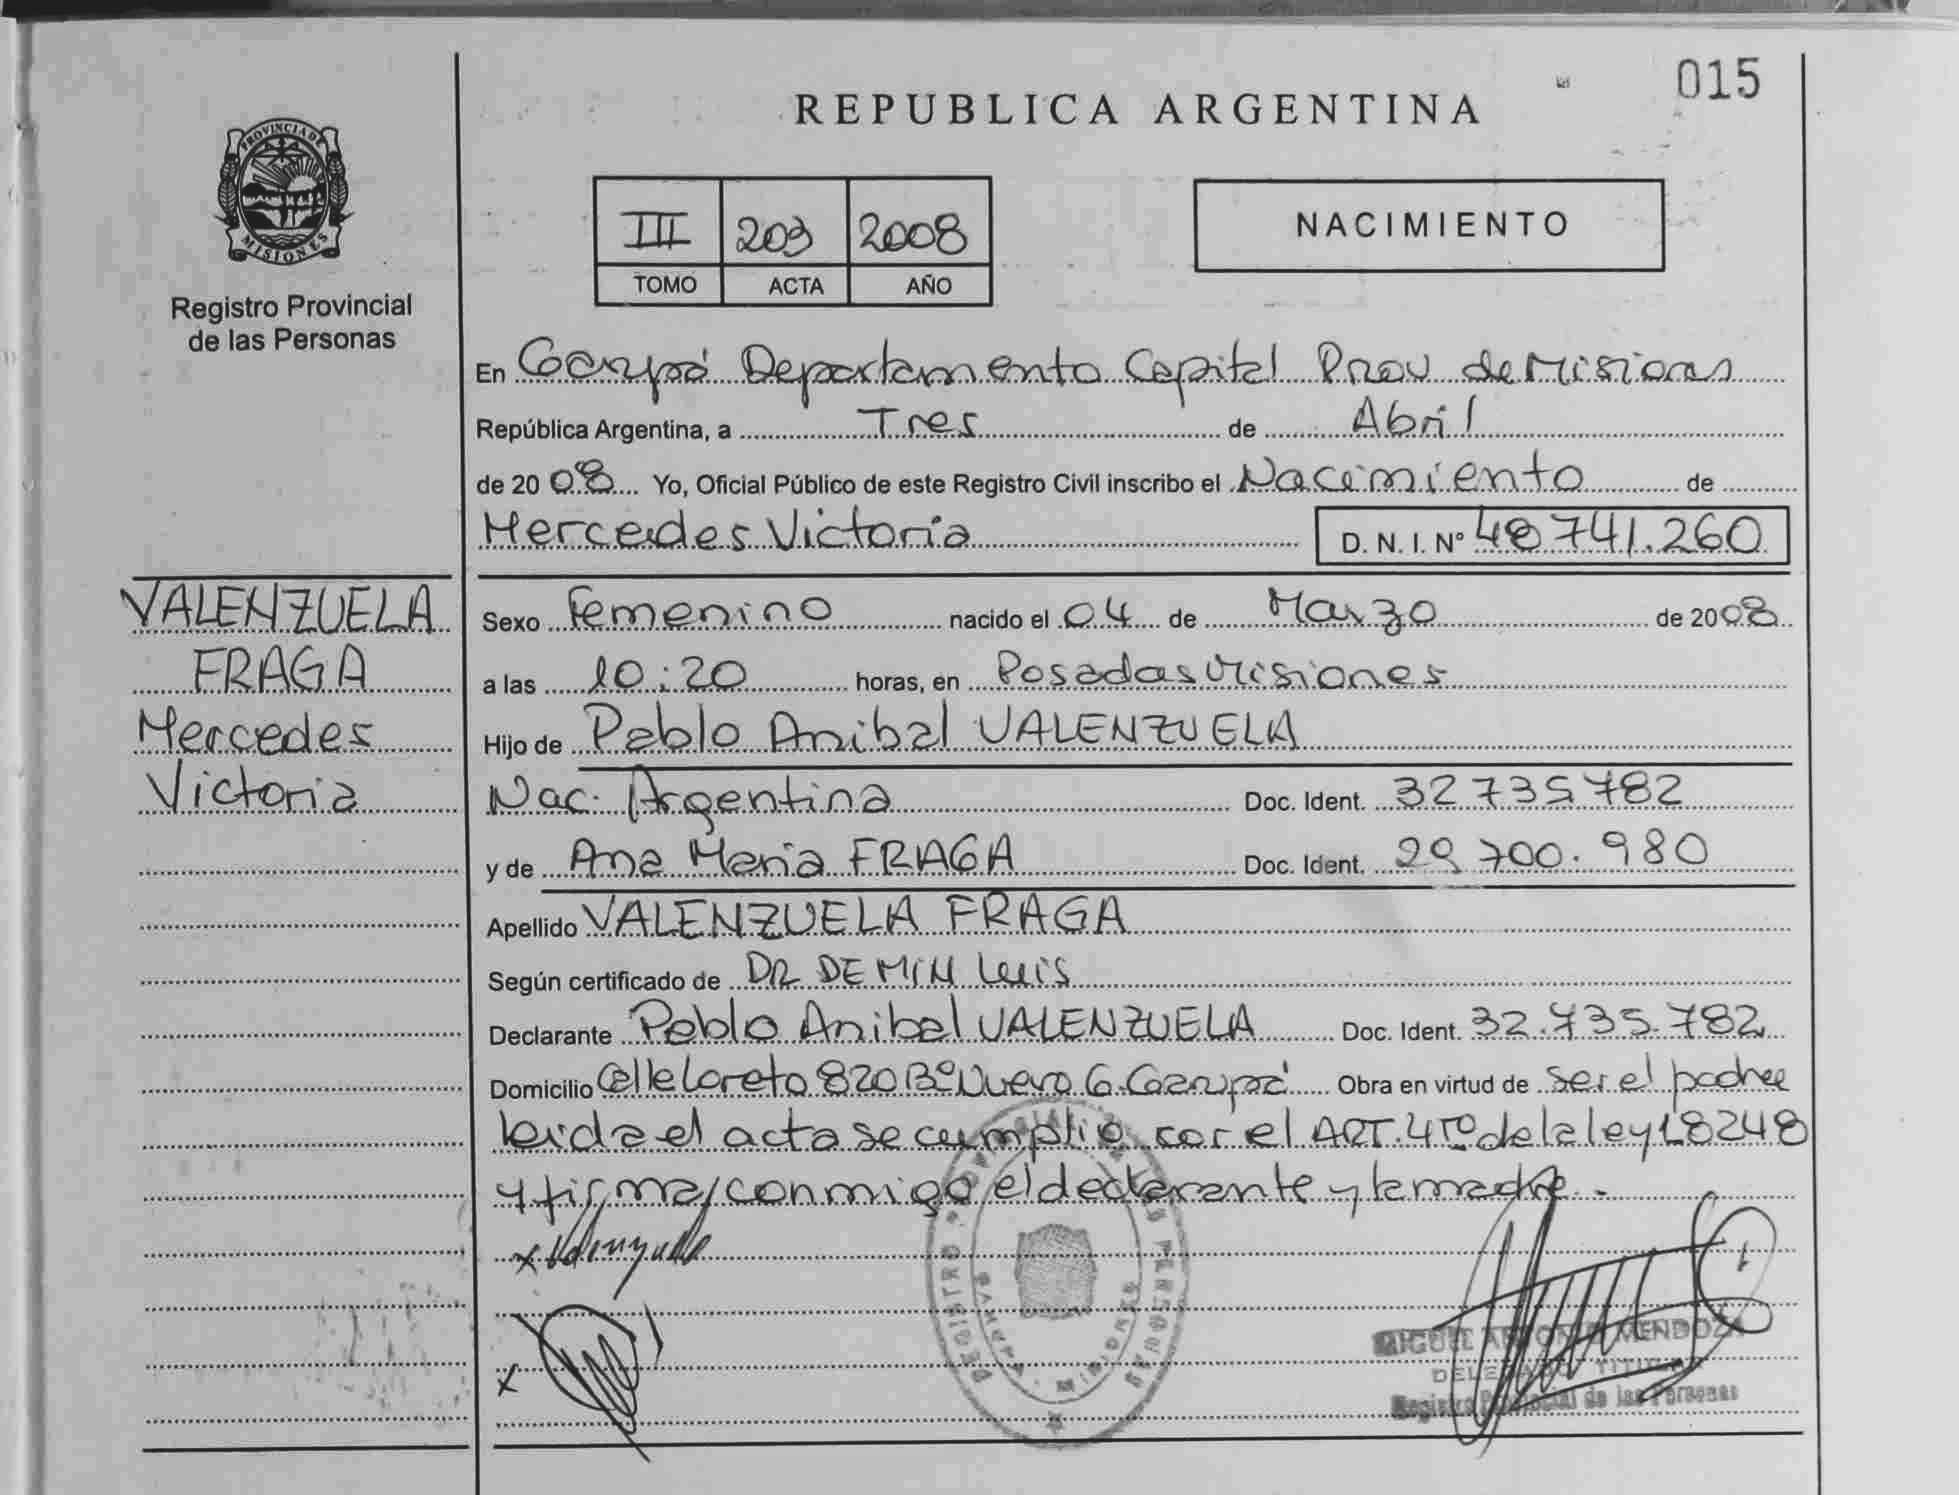 015
REPUBLICA ARGENTINA
PROVINCIA DE
MISIONES
Registro Provincial
de las Personas
III 203 2008
TOMO ACTA AÑO
NACIMIENTO
En Garupá Departamento Capital Prov de Misiones
República Argentina, a Tres de Abril
de 2008 Yo, Oficial Público de este Registro Civil inscribo el Nacimiento de
Mercedes Victoria D. N. I. Nº 48 741.260
VALENZUELA
FRAGA
Mercedes
Victoria
Sexo Femenino nacido el 04 de Marzo de 2008
a las 10:20 horas, en Posadas Misiones
Hijo de Pablo Anibal VALENZUELA
Nac. Argentina Doc. Ident. 32735782
y de Ana Maria FRAGA Doc. Ident. 29700.980
Apellido VALENZUELA FRAGA
Según certificado de DR DEMIN Luis
Declarante Pablo Anibal VALENZUELA Doc. Ident. 32.735.782
Domicilio Calle Loreto 820 Bº Nuevo G. Garupá Obra en virtud de ser el padre
leida el acta se cumplio con el ART. 4Tº de la ley 18248
y firma conmigo el declarante y la madre.
x Valenzuela
x
REGISTRO PROVINCIAL DE LAS PERSONAS
GARUPA - MISIONES
MIGUEL ANTONIO MENDOZA
DELEGADO TITULAR
Registro Provincial de las Personas